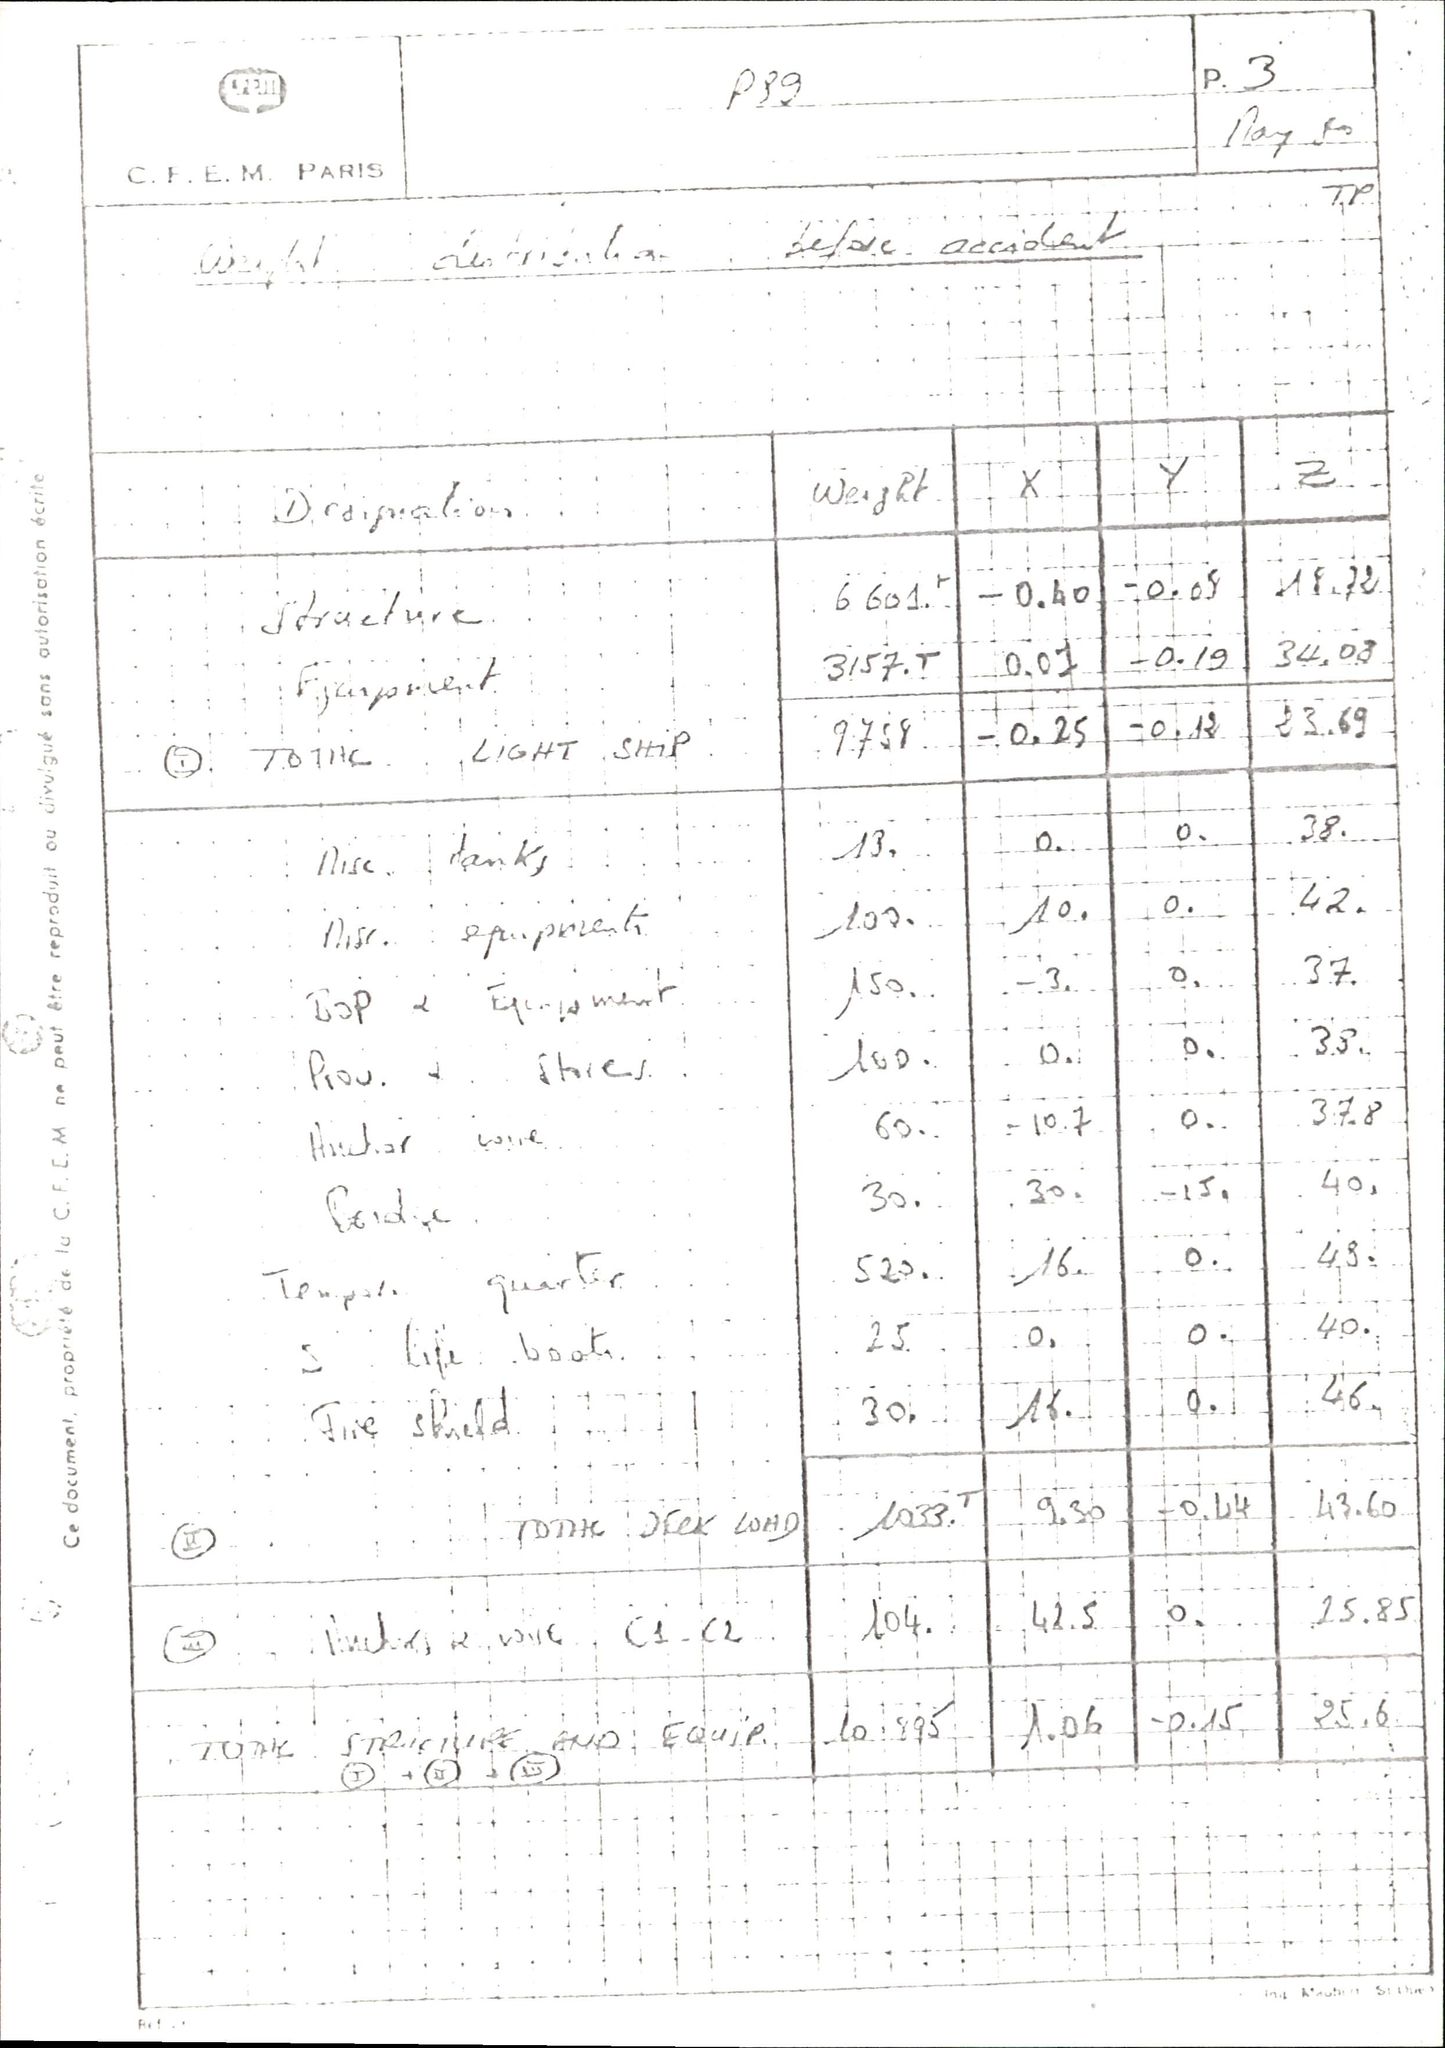 CFEM
C. F. E. M. PARIS
P89
P. 3
May 80
TP
Weight distribution before accident
Designation Weight X Y Z
Structure 6 601.T -0.40 -0.09 18.72
Equipment 3157.T 0.07 -0.19 34.08
I TOTAL LIGHT SHIP 9758 -0.25 -0.12 23.69
Misc. tanks 13. 0. 0. 38.
Misc. equipments 100. 10. 0. 42.
BOP & Equipment 150. -3. 0. 37.
Prov. & stores 100. 0. 0. 38.
Anchor wire 60. -10.7 0. 37.8
30. 30. -15. 40.
Tempor. quarter 520. 16. 0. 48.
5 life boats 25 0. 0. 40.
Fire shield 30. 16. 0. 46.
II TOTAL DECK LOAD 1033.T 9.30 -0.44 43.60
III Anchors & wire C1-C2 104. 42.5 0. 25.85
TOTAL STRUCTURE AND EQUIP. 10 895 1.06 -0.15 25.6
I + II + III
Ce document, propriété de la C.F.E.M ne peut être reproduit ou divulgué sans autorisation écrite
Imp. Maubert St Ouen
Réf